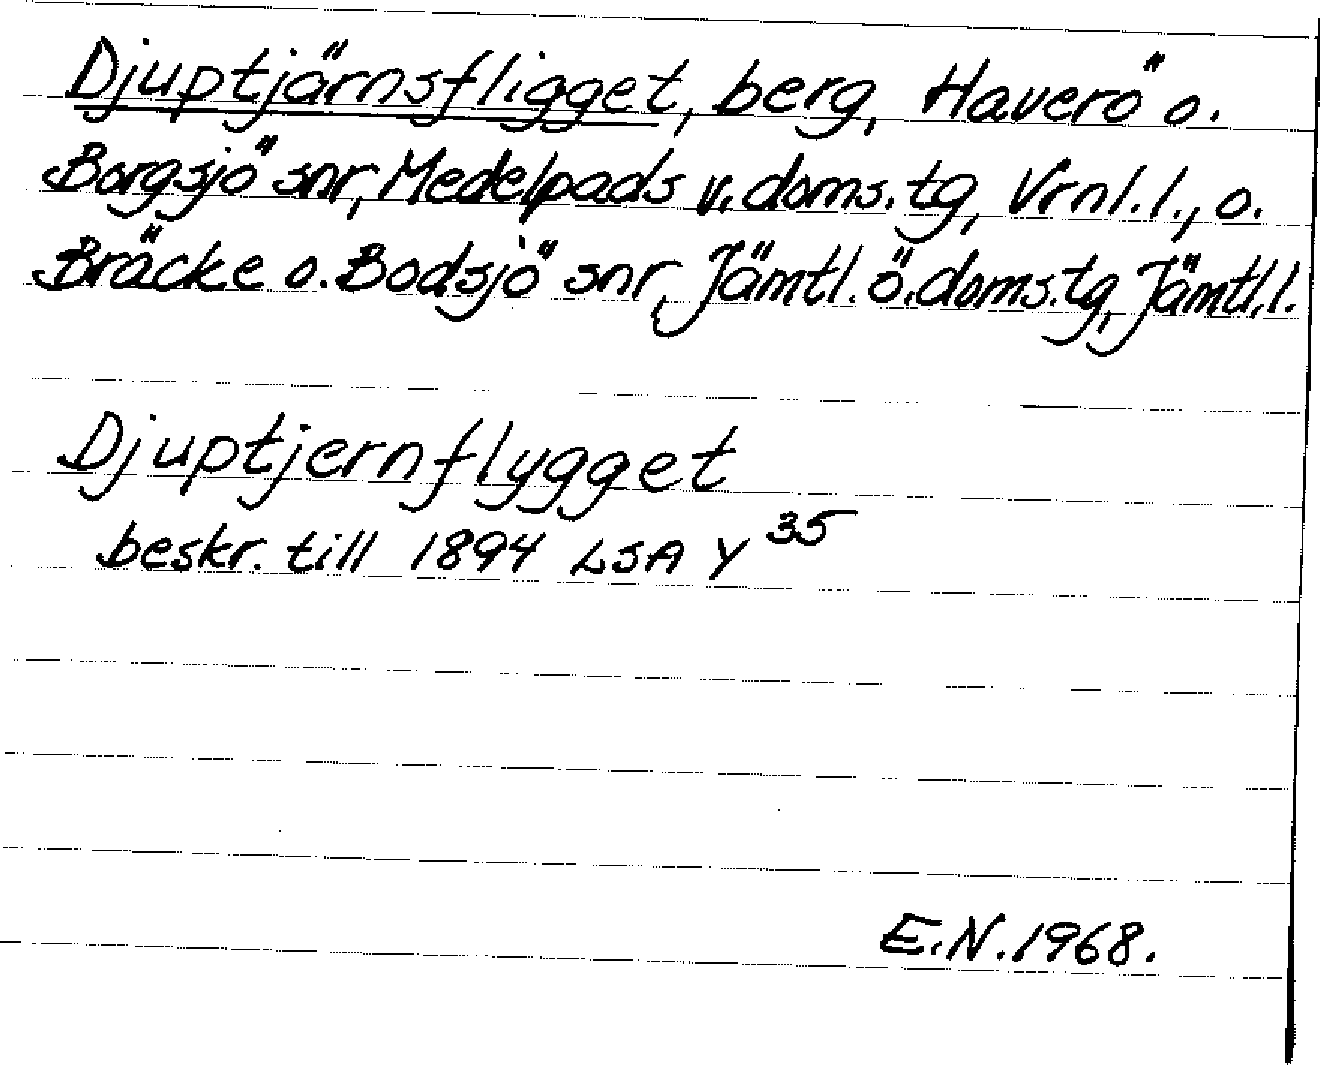 Djuptjärnsfligget, berg, Haverö o.
Borgsjö snr, Medelpads v. doms. tg, Vrnl. l., o.
Bräcke o. Bodsjö snr, Jämtl. ö. doms. tg, Jämtl. l.
Djuptjernflygget
beskr. till 1894 LSA Y 35
E.N. 1968.